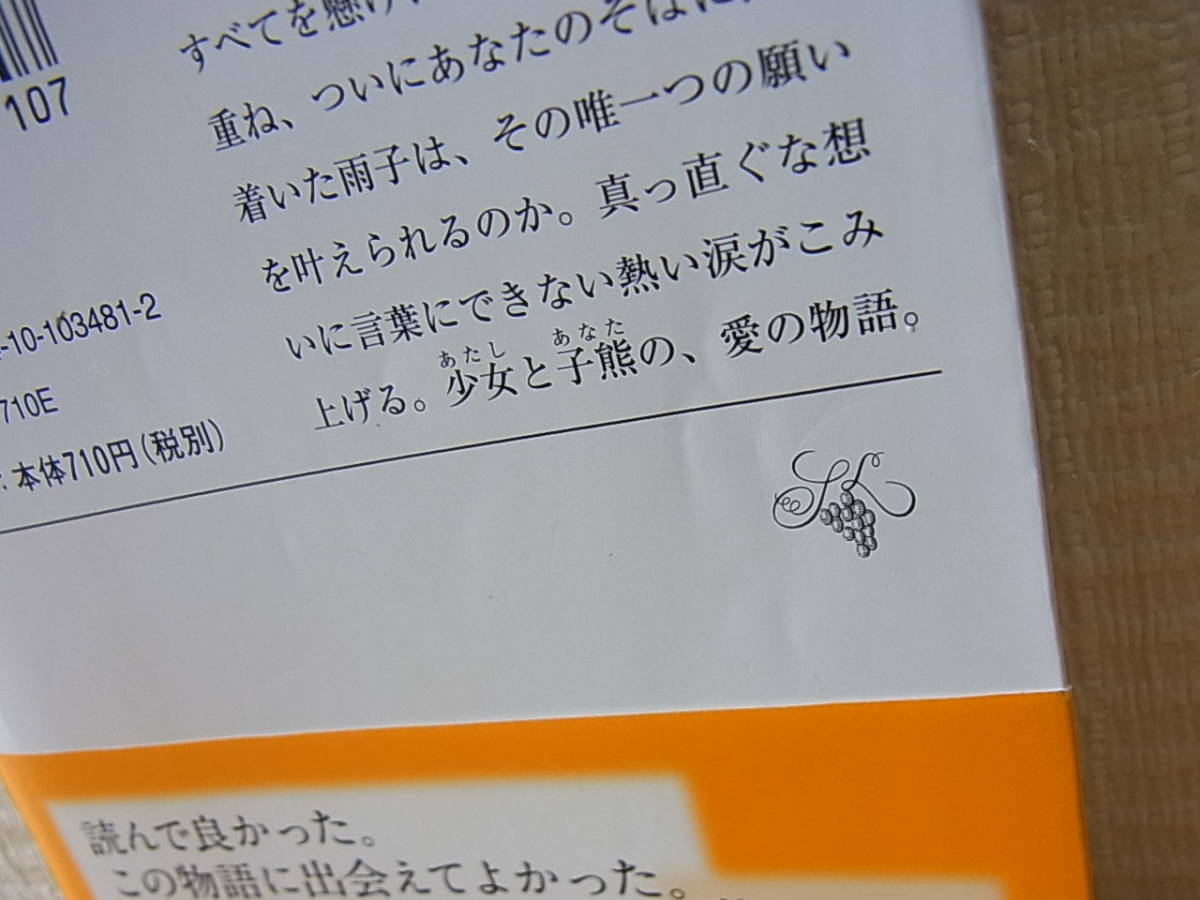 107
すべてを懸け
重ね、ついにあなたのそばに
着いた雨子は、その唯一つの願い
を叶えられるのか。真っ直ぐな想
いに言葉にできない熱い涙がこみ
上げる。少女と子熊の、愛の物語。
あたし
あなた
-10-103481-2
710E
: 本体710円(税別)
SK
読んで良かった。
この物語に出会えてよかった。